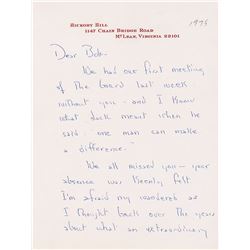 HICKORY HILL
1147 CHAIN BRIDGE ROAD
McLEAN, VIRGINIA 22101
1975
Dear Bob -
We had our first meeting
of the board last week
without you - and I know
what Jack meant when he
said: one man can make
a difference."
We all missed you - your
absence was keenly felt
I'm afraid my wandered as
I thought back over the years
about what an extraordinary